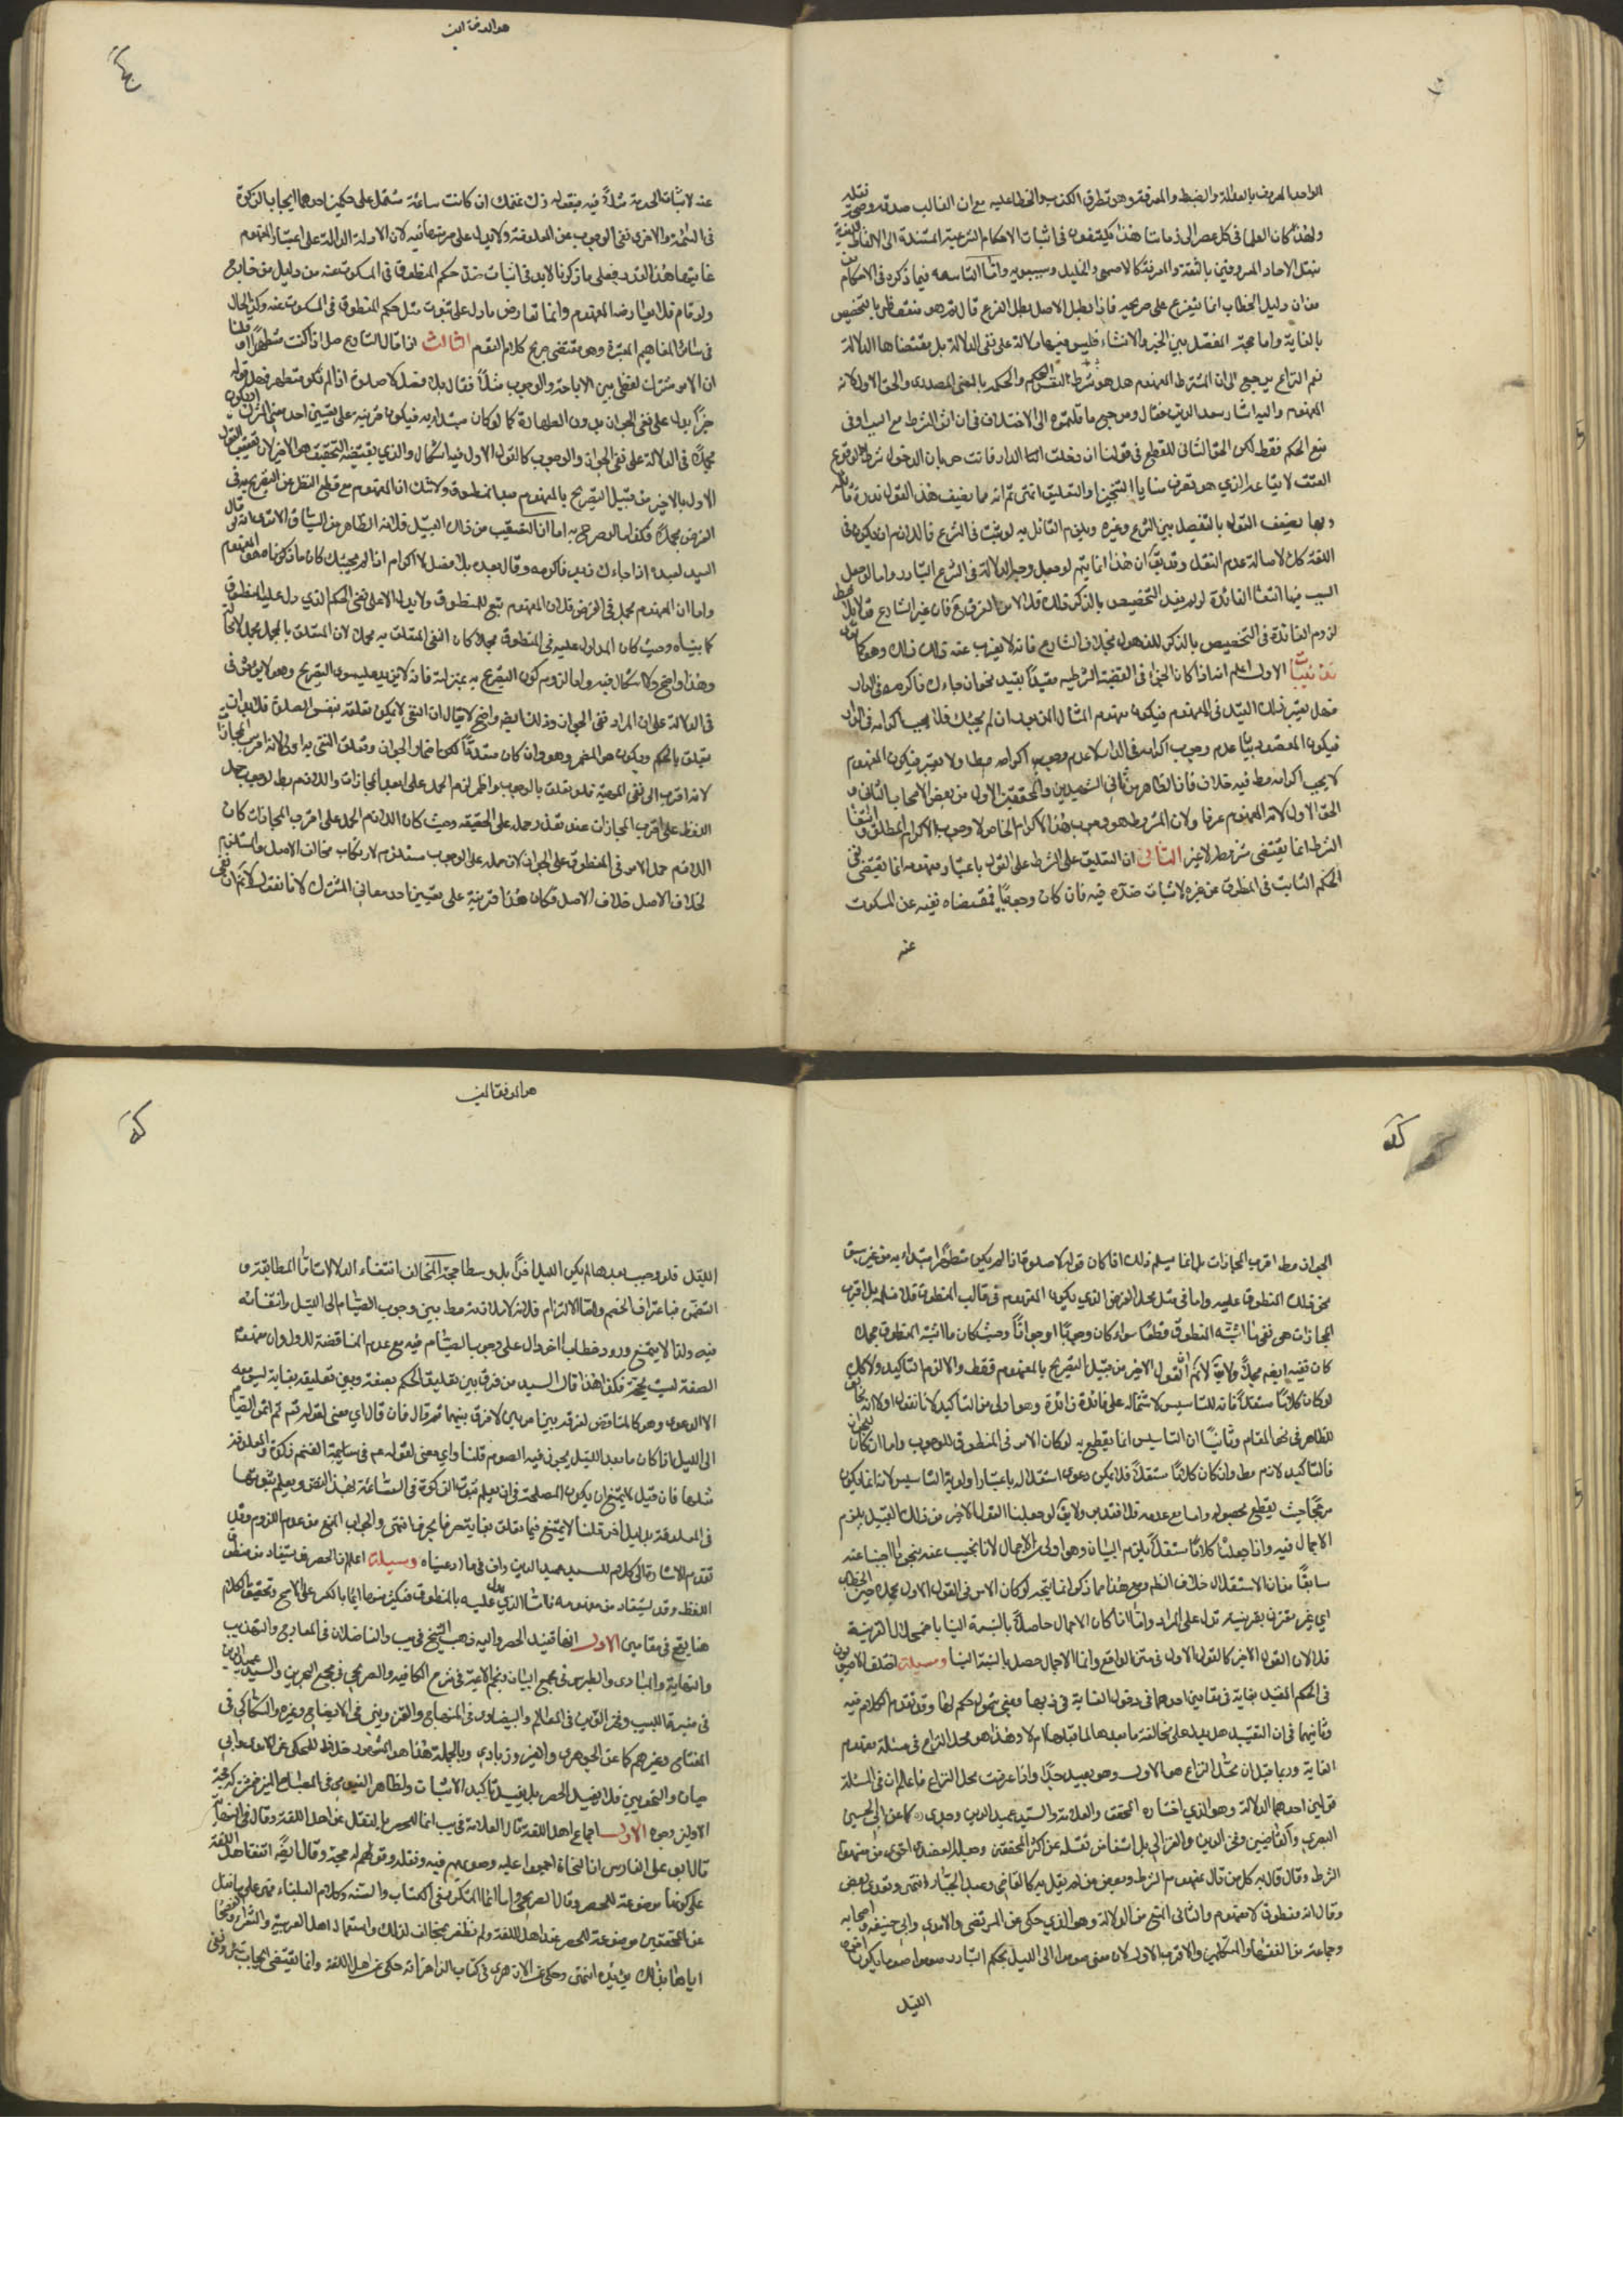 الواحد المعروف بالعدالة والضبط والمعرفة وهو تطرق الكذب والخطا عليه مع ان الغالب صدقه وصحة نقله
ولهذا كان العلما في كل عصر الى زماننا هذا يكتفون في اثبات الاحكام الشرعية المستندة الى الالفاظ اللغوية
بنقل الاحاد المعروفين بالثقة والمعرفة كالاصمعي والخليل وسيبويه واما التاسعه فيما ذكره في الاحكام من
ان دليل الخطاب انما يتفرع على صريحه فاذا بطل الاصل بطل الفرع قال
بالغاية واما حجة المفصل بين الخبر والانشاء فليس فيها دلالة على نفى الدلالة بل مقتضاها الدلالة
نعم النزاع يرجع الى ان المشترط المفهوم هل هو شرط النفس الحكم والحكم بالمعنى المصدري والحق الاول لانه
المفهوم واليه اشار سعد الدين فقال ومرجع ما قلتموه الى الاختلاف في ان اثر الشرط مع السبب او في
منع الحكم فقط لكن الحق الثاني للقطع في قولنا ان دخلت الدار فانت حر بان الدخول شرط لوقوع
العتق
وبها يضعف القول بالتفصيل بين الشرع وغيره ويلزم القائل به لو ثبت في الشرع
اللغة كك لاصالة عدم النقل وقد يقال ان هذا انما يتم لو جعل وجه الدلالة في الشرع التبادر واما لو جعل
السبب فيها انتفا الفائدة لو لم يفد التخصيص بالذكر فلا
لزوم الفائدة في التخصيص بالذكر للذهول بخلاف الشارع فانه لا يعزب عنه ذلك
الاول اعلم انه اذا كان الجزاء في القضية الشرطيه مقيدا بقيد نحو ان جاءك فاكرمه في الدار
فهل يعتبر ذلك القيد في المفهوم فيكون مفهوم المثال المزبور ان لم يجئك فلا يجب اكرامه في الدار
فيكون المقصود بيان عدم وجوب اكرامه في الدار لا عدم وجوب اكرامه مطلقا ولا يعتبر فيكون المفهوم
لا يجب اكرامه مط فيه خلاف فالظاهر من ثاني الشهيدين والمحقق الاول من بعض الاصحاب الثاني و
الحق الاول لانه المفهوم عرفا ولان المشروط هو وجوب هذا الاكرام الخاص لا وجوب الاكرام المطلق وانتفا
الشرط انما يقتضي مشروطه لا غير الثاني ان التعليق على الشرط على القول باعتبار مفهومه انما يقتضي نفى
الحكم الثابت في المنطوق عن غيره لا اثبات ضده فيه فان كان وجوبا فمقتضاه نفيه عن المسكوت
عنه
هو الموفق المعين
عنه لا اثبات الحرمة مثلا فيه فقوله زك غنمك ان كانت سائمة مشتمل على حكمين احدهما ايجاب الزكوة
في السائمة والاخرى نفى الوجوب عن المعلوفة ولا يدل على حرمتها فيه لان الادلة الدالة على اعتبار المفهوم
غايتها هذا القدر فعلى ما ذكرنا لا بد في اثبات ضد حكم المنطوق في المسكوت عنه من دليل من خارج
ولو قام فلا يعارضه المفهوم وانما تعارض ما دل على ثبوت مثل حكم المنطوق في المسكوت عنه وكذا الحال
في سائر المفاهيم المعتبرة وهو مقتضى صريح كلام القوم الثالث اذا قال الشارع صل اذا كنت متطهرا وقلنا
ان الامر مشترك لفظي بين الاباحة والوجوب مثلا فقال بلا فصل لا صلوة اذا لم تكن متطهرا فهل قوله
جزا يدل على نفى الجواز بدون الطهارة كما لو كان مبتدا به فيكون قرينة على تعيين احد معنى المشترك او يكون
مجملا في الدلالة على نفى الجواز والوجوب كالقول الاول فيه اشكال والذي يقتضيه التحقيق هو الاخير لان تعقيب القول
الاول بالاخير من قبيل التصريح بالمفهوم بعد المنطوق ولا شك ان المفهوم مع قطع النظر عن التصريح به في
الفرض مجمل فكذا لو صرح به اما ان التعقيب من ذلك القبيل فلانه الظاهر من السياق الاترى انه لو قال
السيد لعبده اذا جاءك زيد فاكرمه وقال بعده بلا فصل لا اكرام اذا لم يجئك كان ما ذكرنا محقق المفهوم
واما ان المفهوم مجمل في الفرض فلان المفهوم تبع للمنطوق ولا يدل الا على نفى الحكم الذي دل عليه المنطوق
كما بيناه وحيث كان المدلول عليه في المنطوق مجملا كان النفى المتعلق به مجملا لان المتعلق بالمجمل مجمل لا محالة
وهذا واضح ولا اشكال فيه واما لزوم كون التصريح به بمنزلته فانه لا يزيد عليه سوى التصريح وهو لا يؤثر في
في الدلالة على ان المراد نفى الجواز وذلك ايضا واضح لا يقال ان النفى لا يمكن تعلقه بنفس الصلوة فلا بد ان
يتعلق بالحكم ويكون هو المضمر وهو وان كان متعددا لكن اضمار الجواز وتعلق النفى به اولى لانه اقرب المجازات
لانه اقرب الى نفى الموهية فلو تعلق بالوجوب واظهر لزم الحمل على ابعد المجازات واللازم بط لوجوب حمل
اللفظ على اقرب المجازات عند تعذر حمله على الحقيقه وحيث كان اللازم الحمل على اقرب المجازات كان
اللازم حمل الامر في المنطوق على الجواز لان حمله على الوجوب مستلزم لارتكاب مخالف الاصل والمستلزم
لخلاف الاصل خلاف الاصل فكان هذا قرينة على تعيين احد معاني المشترك لانا نقول لا نم ان نفى
الجواز مط اقرب المجازات بل انما يسلم ذلك اذا كان قوله لا صلوة اذا لم يكن متطهرا ابتداء به من غير سبق
نحو ذلك المنطوق عليه واما في مثل محل الفرض الذي يكون المفهوم في قالب المنطوق فلا نسلم بل اقرب
المجازات هو نفى ما اثبته المنطوق قطعا سواء كان وجوبا او جوازا وحيث كان ما اثبته المنطوق مجملا
كان نفيه ايضا مجملا ولا يق لا نم ان القول الاخير من قبيل التصريح بالمفهوم فقط والا لزم التاكيد ولا كك
لو كان كلاما مستقلا فانه للتاسيس لاشتماله على فائدة زائدة وهو اولى من التاكيد لانا نقول اولا انه
للظاهر في نحو المقام وثانيا ان التاسيس انما يقطع به لو كان الامر في المنطوق للوجوب واما ان كان للجواز
فالتاكيد لازم مط وان كان كلاما مستقلا فلا يمكن دعوى استقلاله باعتبار اولوية التاسيس لانه انما يكون
مرجحا حيث يقطع بحصوله واما مع عدمه فلا افتدبر ولا يق لو جعلنا القول الاخر من ذلك القبيل يلزم
الاجمال فيه واذا جعلناه كلاما مستقلا يلزم البيان وهو اولى من الاجمال لانا نجيب عنه بنحو ما اجبنا عنه
سابقا من ان الاستقلال خلاف الظاهر ومع هذا فما ذكر انما يتجه لو كان الامر في القول الاول مجملا حين الخطاب
اي غير مقترن بقرينة تدل على المراد واما اذا كان الاجمال حاصلا بالنسبة الينا باضمحلال القرينة
فلا لان القول الاخير كالقول الاول في متن الواقع وانما الاجمال حصل بالنسبة الينا وسيلة اختلف الاصوليون
في الحكم المقيد بغاية في مقامين احدهما في دخول الغاية في ذيها بمعنى شمول حكم لها وقد تقدم الكلام فيه
وثانيهما في ان التقييد هل يدل على مخالفة ما بعدها لما قبلها ام لا وهذا هو محل النزاع في مسئلة مفهوم
الغاية وربما قيل ان محل النزاع هو الاول وهو بعيد جدا واذا عرفت محل النزاع فاعلم ان في المسئلة
قولين احدهما الدلالة وهو الذي اختاره المحقق والعلامة والسيد عميد الدين وجدي ره كما عن ابي الحسين
البصري والقاضيين وفخر الدين والغزالي بل استفاض نقله عن اكثر المحققين وجعله العضدي اقوى من مفهوم
الشرط وقال قال به كل من قال بمفهوم الشرط وبعض من لم يقل به كالقاضي وعبد الجبار انتهى وتعدى بعض
وقال انه منطوق لا مفهوم والثاني المنع من الدلالة وهو الذي حكى عن المرتضى والامدي وابي حنيفه واصحابه
وجماعة من الفقهاء والمتكلمين والاقرب الاول لان معنى صوموا الى الليل بحكم التبادر صوموا صوما يكون اخره
الليل
هو الموفق المعين
الليل فلو وجب بعدها لم يكن الليل اخرا بل وسطا حجة المخالف انتفاء الدلالات اما المطابقة و
التضمن فباعتراف الخصم واما الالتزام فلانه لا ملازمة مط بين وجوب الصيام الى الليل وانتفائه
فيه ولذا لا يمتنع ورود خطاب اخر دال على وجوب الصيام فيه مع عدم المناقضة للاول وان مفهوم
الصفة ليس بحجة فكذا هذا قال السيد من فرق بين تعليق الحكم بصفة وبين تعليقه بغاية ليس معه
الا الدعوى وهو كالمناقض لفرقه بين امرين لا فرق بينهما ثم قال فان قال اي معنى لقوله ثم اتموا الصيام
الى الليل اذا كان ما بعد الليل يجوز فيه الصوم قلنا واي معنى لقوله عم في سائمة الغنم زكوة والمعلوفة
مثلها فان قيل لا يمتنع ان يكون المصلحة في ان يعلم ثبوت الزكوة في السائمة بهذا النص ويعلم ثبوتها
في المعلوفة بدليل اخر قلنا لا يمتنع فيما تعلق بغاية حرفا بحرف انتهى والجواب المنع من عدم اللزوم وقد
تقدم الاشارة الى كلام للسيد عميد الدين واف في ما ادعيناه وسيلة اعلم ان الحصر قد يستفاد من منطوق
اللفظ وقد يستفاد من مفهومه فالشا الذي يدل عليه بالمنطوق فكثير منها انما بالكسر على الاصح وتحقيق الكلام
هنا يقع في مقامين الاول انها تفيد الحصر واليه ذهب الشيخ في يب والفاضلان في المعارج والتهذيب
والنهاية والمبادي والطبرسي في مجمع البيان ونجم الائمة في شرح الكافيه والطريحي في مجمع البحرين والسيد عميد الدين
في منية اللبيب وفخر الدين في المعالم والبيضاوي في المنهاج والقزويني في الايضاح وغيره والسكاكي في
المفتاح وغيرهم كما عن الجوهري والفيروزابادي وبالجملة هذا هو المشهور خلافا للمحكى عن الامدي وابي
حيان والنحويين فلا يفيد الحصر بل يفيد تاكيد الاثبات ولظاهر الفيومي في المصباح المنير
الاولين وجوه الاول اجماع اهل اللغة قال العلامة في يب انما للحصر بالنقل عن اهل اللغة وقال في النهاية
قال ابو على الفارسي ان النحاة اجمعوا عليه وصوبهم فيه ونقله وقولهم له حجة وقال ايضا اتفق اهل اللغة
على كونها موضوعة للحصر وقال الطريحي واما انما المتكرر في الكتاب والسنة وكلام البلغاء فهى على ما نقل
عن المحققين موضوعة للحصر عند اهل اللغة ولم نظفر بمخالف لذلك واستعمال اهل العربية والشعراء والفصحاء
اياها بذلك يؤيده انتهى وحكى عن الازهري في كتاب الزاهر انه حكى عن اهل اللغة وانما يقتضي ايجاب شئ ونفى